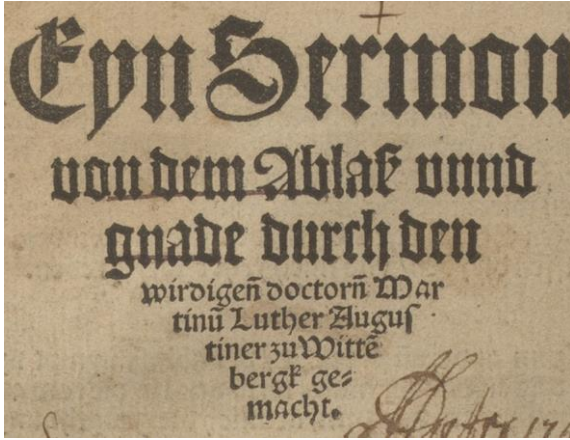 Eyn Sermon
von dem Ablaß vnnd
gnade durch den
wirdigen̄ doctorn̄ Mar
tinū Luther Augus
tiner zu Wittē
bergk ge⸗
macht.